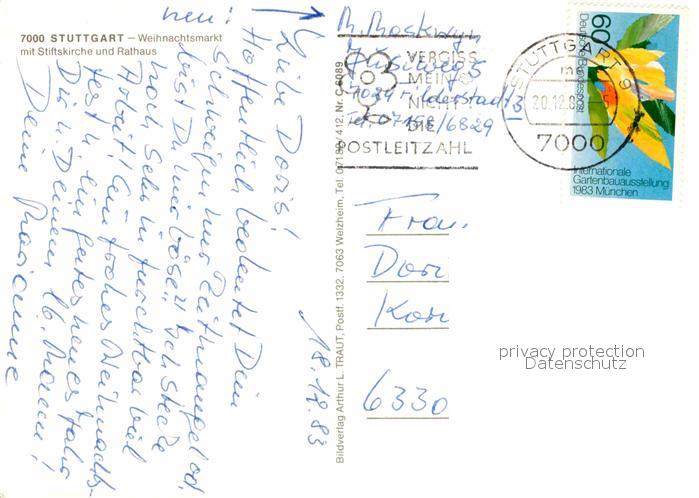 7000 STUTTGART – Weihnachtsmarkt
mit Stiftskirche und Rathaus
neu:
Liebe Doris!
Hoffentlich bedeutet Dein
Schweigen nur Zeitmangel od.
bist Du mir böse? Ich stecke
noch sehr in furchtbar viel
Arbeit! Ein frohes Weihnachts-
fest u. ein gutes neues Jahr
Dir u. Deinem lb. Mann!
Deine Marianne
18.12.83
Bildverlag Arthur L. TRAUT, Postf. 1332, 7063 Welzheim, Tel. 07182/412, Nr. C 6089
7024 Filderstadt 3
Tel. 07158/6829
VERGISS
MEIN
NICHT
DIE
POSTLEITZAHL
STUTTGART 9
20.12.8
7000
60
Deutsche Bundespost
Internationale
Gartenbauausstellung
1983 München
Frau
Dori
Kor
6330
privacy protection
Datenschutz